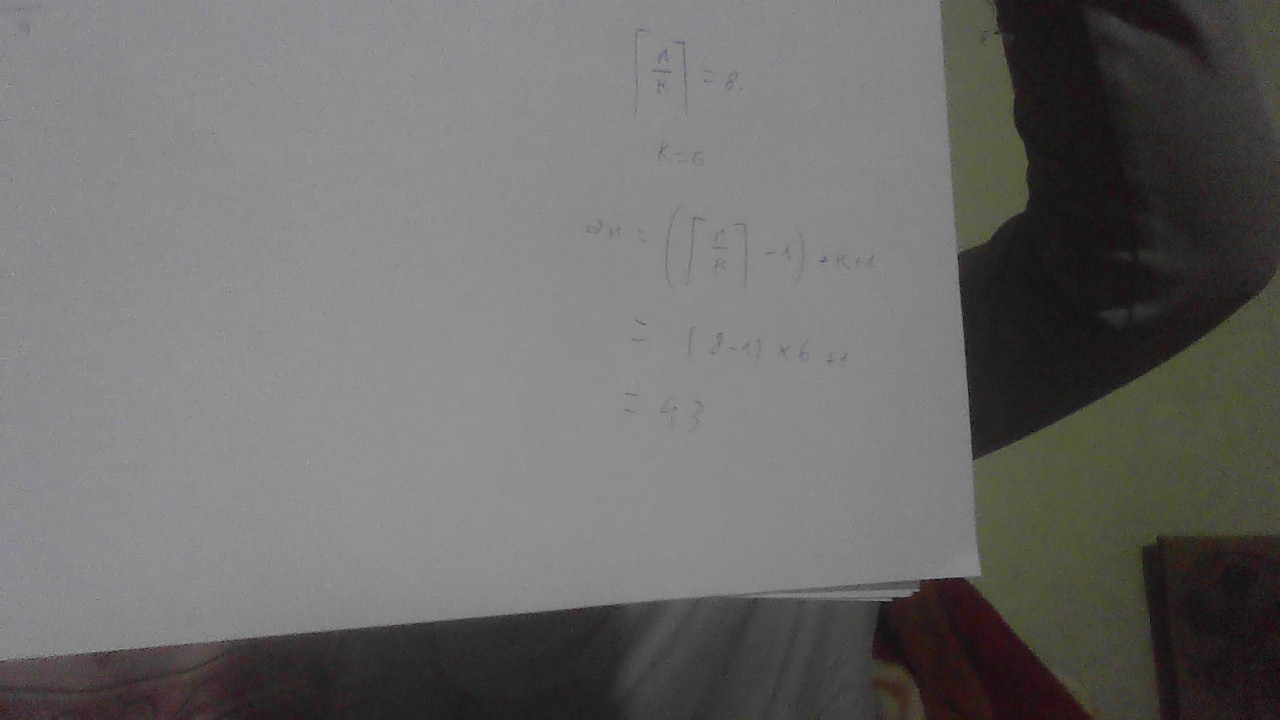 ⌈n/k⌉ = 8.
k = 6
n = (⌈n/k⌉ - 1) * k + 1
= (8-1) × 6 + 1
= 43